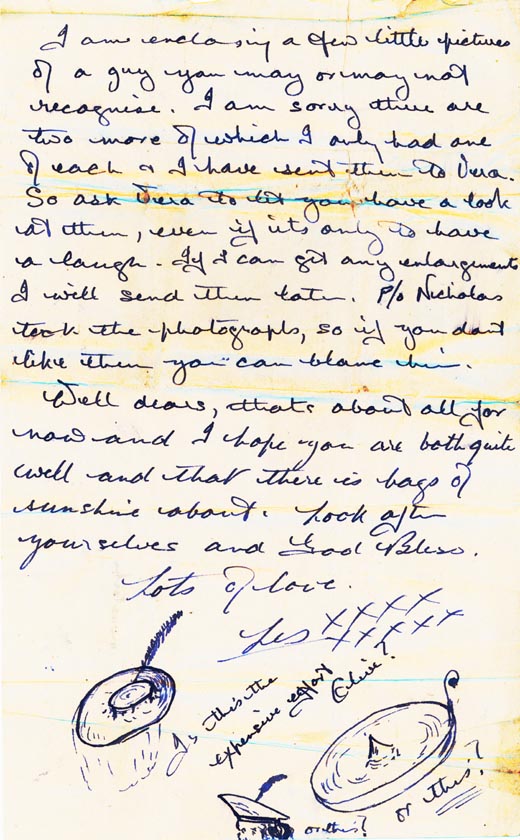 I am enclosing a few little pictures
of a guy you may or may not
recognise. I am sorry there are
two more of which I only had one
of each & I have sent them to Vera.
So ask Vera to let you have a look
at them, even if its only to have
a laugh. If I can get any enlargements
I will send them later. P/o Nicholas
took the photographs, so if you dont
like them you can blame him.
Well dears, thats about all for
now and I hope you are both quite
well and that there is bags of
sunshine about. Look after
yourselves and God Bless.
Lots of love.
Les XXXXX
XXXXX
Is this the
expensive
or this?
or this?